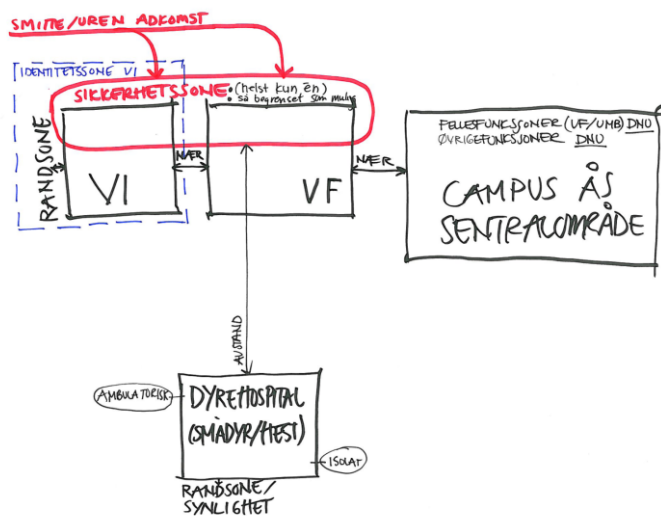 SMITTE/UREN ADKOMST
IDENTITETSSONE VI
SIKKERHETSSONE • (helst kun én)
• så begrenset som mulig
RANDSONE
VI
NÆR
VF
NÆR
FELLESFUNKSJONER (VF/UMB) DNU
ØVRIGEFUNKSJONER DNU
CAMPUS ÅS
SENTRALOMRÅDE
AVSTAND
AMBULATORISK
DYREHOSPITAL
(SMÅDYR/HEST)
ISOLAT
RANDSONE/
SYNLIGHET